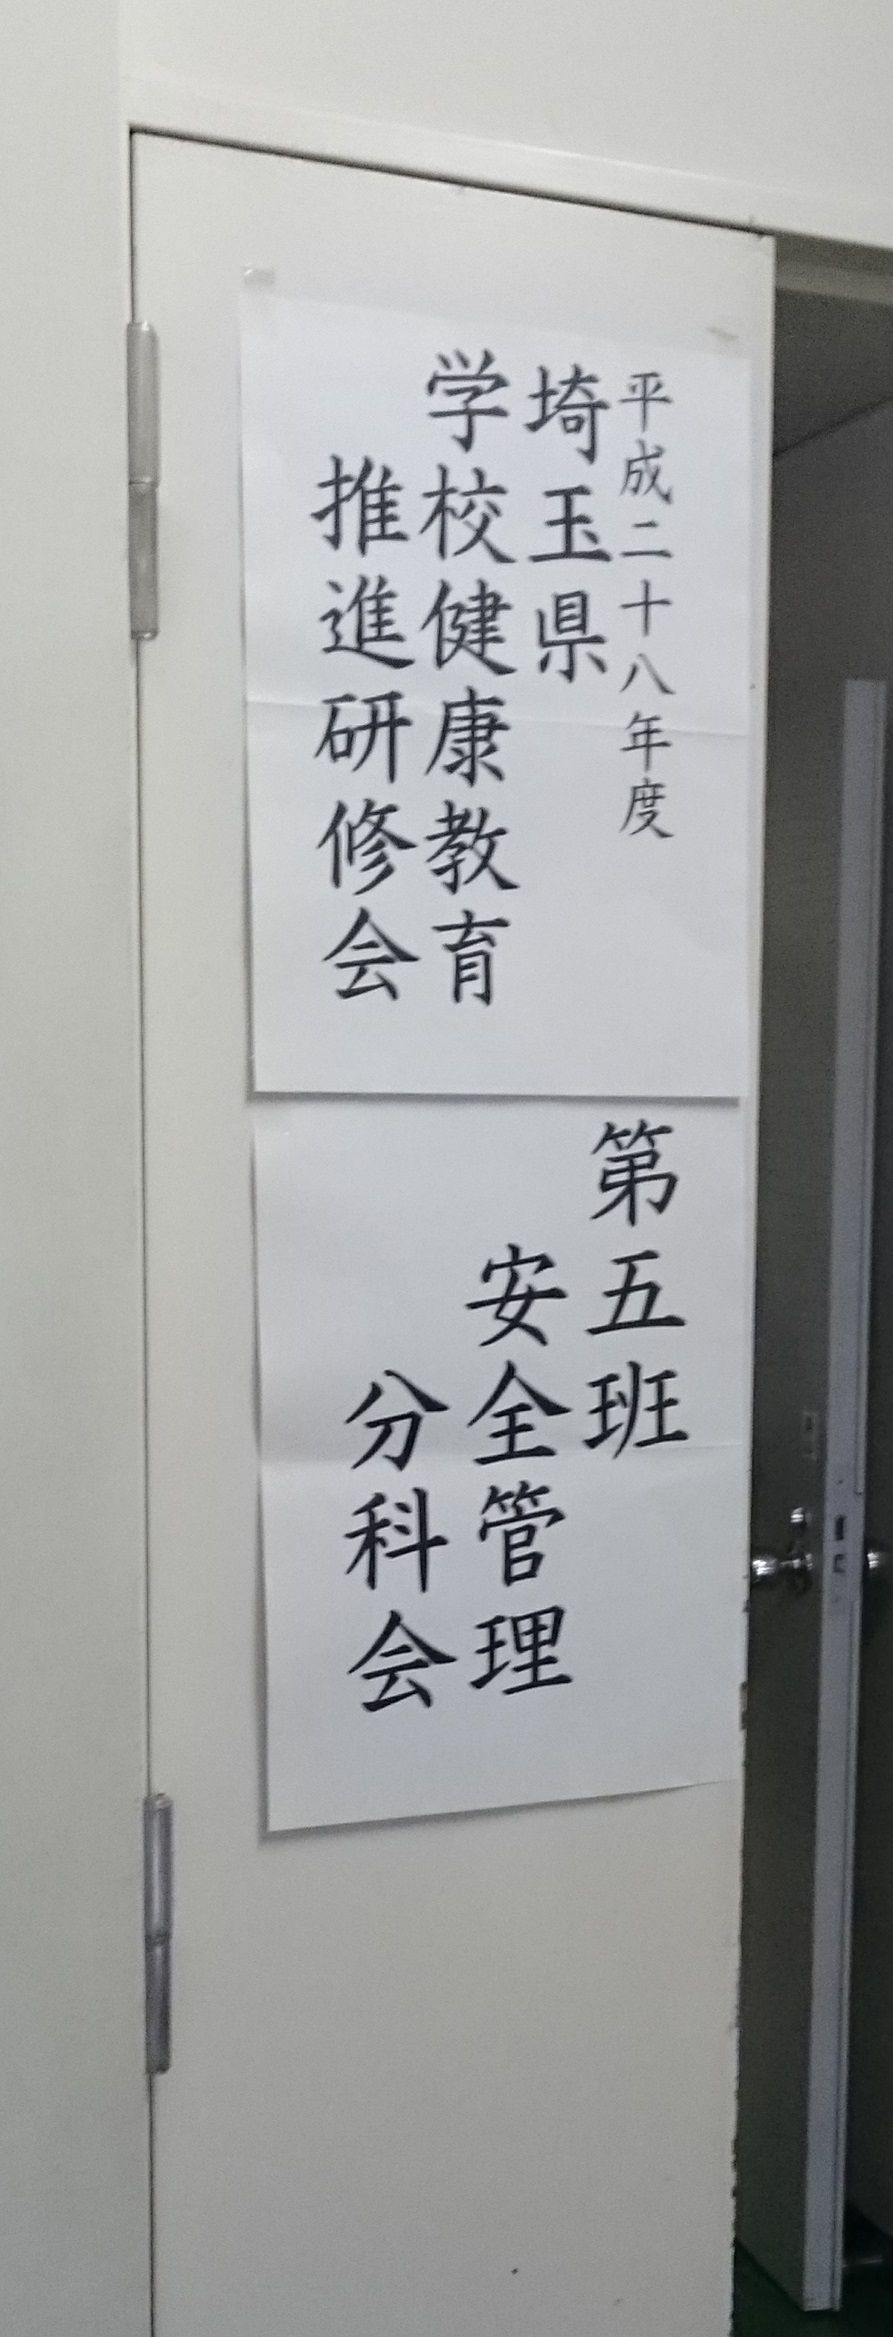 平成二十八年度
埼玉県
学校健康教育
推進研修会
第五班
安全管理
分科会